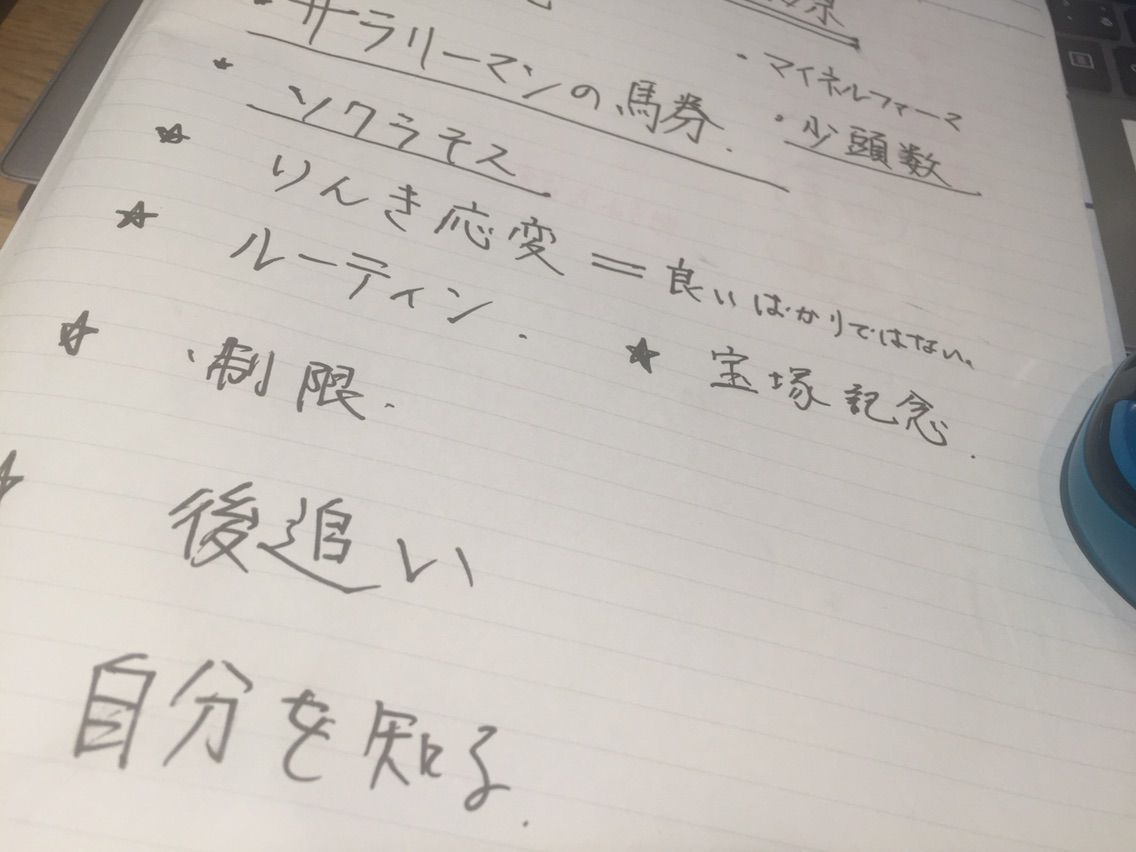 ・サラリーマンの馬券.
・マイネルファーマ
・少頭数
・ソクラテス
☆ りんき応変 = 良いばかりではない。
☆ ルーティン.
★ 宝塚記念.
☆ ・制限.
☆ 後追い
自分を知る.